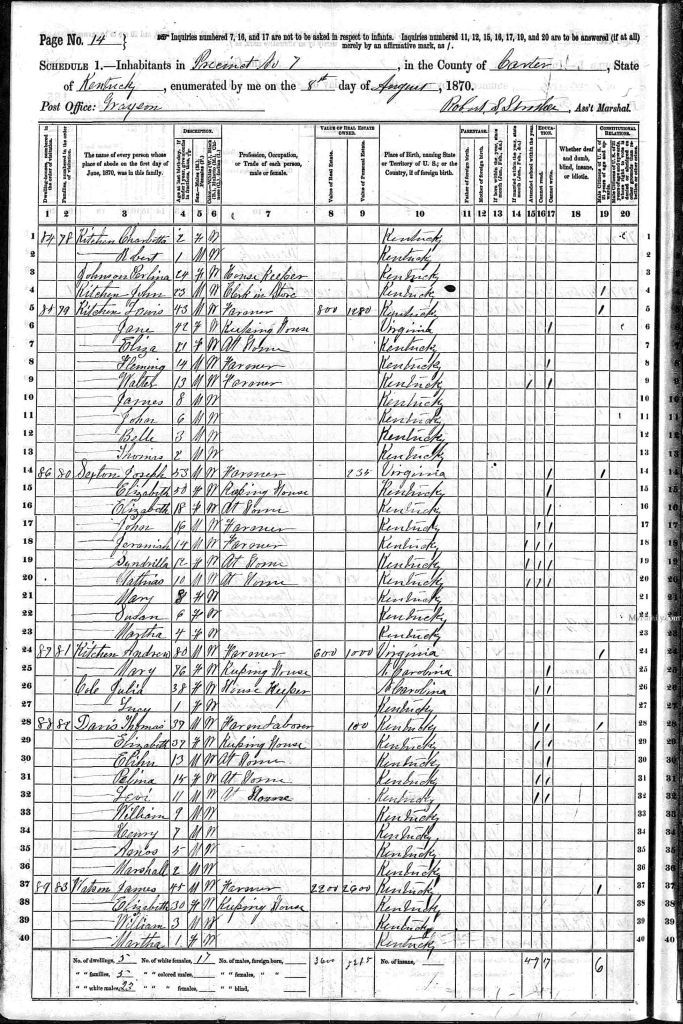 Page No. 14 } Inquiries numbered 7, 16, and 17 are not to be asked in respect to infants. Inquiries numbered 11, 12, 15, 16, 17, 19, and 20 are to be answered (if at all) merely by an affirmative mark, as /.
SCHEDULE 1.—Inhabitants in Precinct No 7, in the County of Carter, State
of Kentucky, enumerated by me on the 8th day of August, 1870.
Post Office: Grayson
Robert S, Ass't Marshal.
DESCRIPTION. VALUE OF REAL ESTATE OWNED. PARENTAGE. EDUCATION. CONSTITUTIONAL RELATIONS.
The name of every person whose place of abode on the first day of June, 1870, was in this family.
Profession, Occupation, or Trade of each person, male or female.
Value of Real Estate. Value of Personal Estate.
Place of Birth, naming State or Territory of U. S.; or the Country, if of foreign birth.
Father of foreign birth. Mother of foreign birth.
Attended school within the year. Cannot read. Cannot write.
Whether deaf and dumb, blind, insane, or idiotic.
1 2 3 4 5 6 7 8 9 10 11 12 13 14 15 16 17 18 19 20
1 84 78 Kitchen Charlotta 2 F W Kentucky 1
2 — Robert 1 M W Kentucky 2
3 Johnson Perlina 24 F W House Keeper Kentucky 3
4 Kitchen John 23 M W Clerk in Store Kentucky 1 4
5 85 79 Kitchen Lewis 43 M W Farmer 800 1280 Kentucky 1 5
6 — Jane 42 F W Keeping House Virginia 1 6
7 — Eliza 21 F W At Home Kentucky 7
8 — Fleming 14 M W Farmer Kentucky 1 8
9 — Walter 13 M W Farmer Kentucky 1 1 9
10 — James 8 M W Kentucky 10
11 — John 6 M W Kentucky 11
12 — Belle 3 W Kentucky 12
13 — Thomas 2 M W Kentucky 13
14 86 80 Sexton Joseph 53 M W Farmer 135 Virginia 1 1 14
15 — Elizabeth 50 F W Keeping House Kentucky 1 15
16 — Elizabeth 18 F W At Home Kentucky 1 16
17 — John 16 M W Farmer Kentucky 1 1 17
18 — Jeramiah 14 M W Farmer Kentucky 1 1 1 18
19 — Syndrilla 12 F W At Home Kentucky 1 1 1 19
20 — Mathias 10 M W At Home Kentucky 1 1 1 20
21 — Mary 8 F W Kentucky 21
22 — Susan 6 F W Kentucky 22
23 — Martha 4 F W Kentucky 23
24 87 81 Kitchen Andrew 80 M W Farmer 600 1000 Virginia 1 24
25 — Mary 76 F W Keeping House N Carolina 1 25
26 Cole Julia 38 F W House Keeper N Carolina 1 1 26
27 — Lucy 1 F W Kentucky 27
28 88 82 Davis Thomas 39 M W Farm Laborer 100 Kentucky 1 1 1 28
29 — Elizabeth 37 F W Keeping House Kentucky 1 1 29
30 — Elihu 13 M W At Home Kentucky 1 1 30
31 — Pelina 15 F W At Home Kentucky 1 1 31
32 — Levi 11 M W At Home Kentucky 1 1 32
33 — William 9 M W Kentucky 33
34 — Henry 7 M W Kentucky 34
35 — 5 M W Kentucky 35
36 — Marshall 2 M W Kentucky 36
37 89 83 Watson James 45 M W Farmer 2200 2600 Kentucky 1 37
38 — Elizabeth 30 F W Keeping House Kentucky 38
39 — William 3 M W Kentucky 39
40 — Martha 1 F W Kentucky 40
No. of dwellings, 5 No. of white females, 17 No. of males, foreign born, 3600 No. of insane, 6
" " families, 5 " " colored males, " " females, " "
" " white males, 23 " " " females, " " blind,